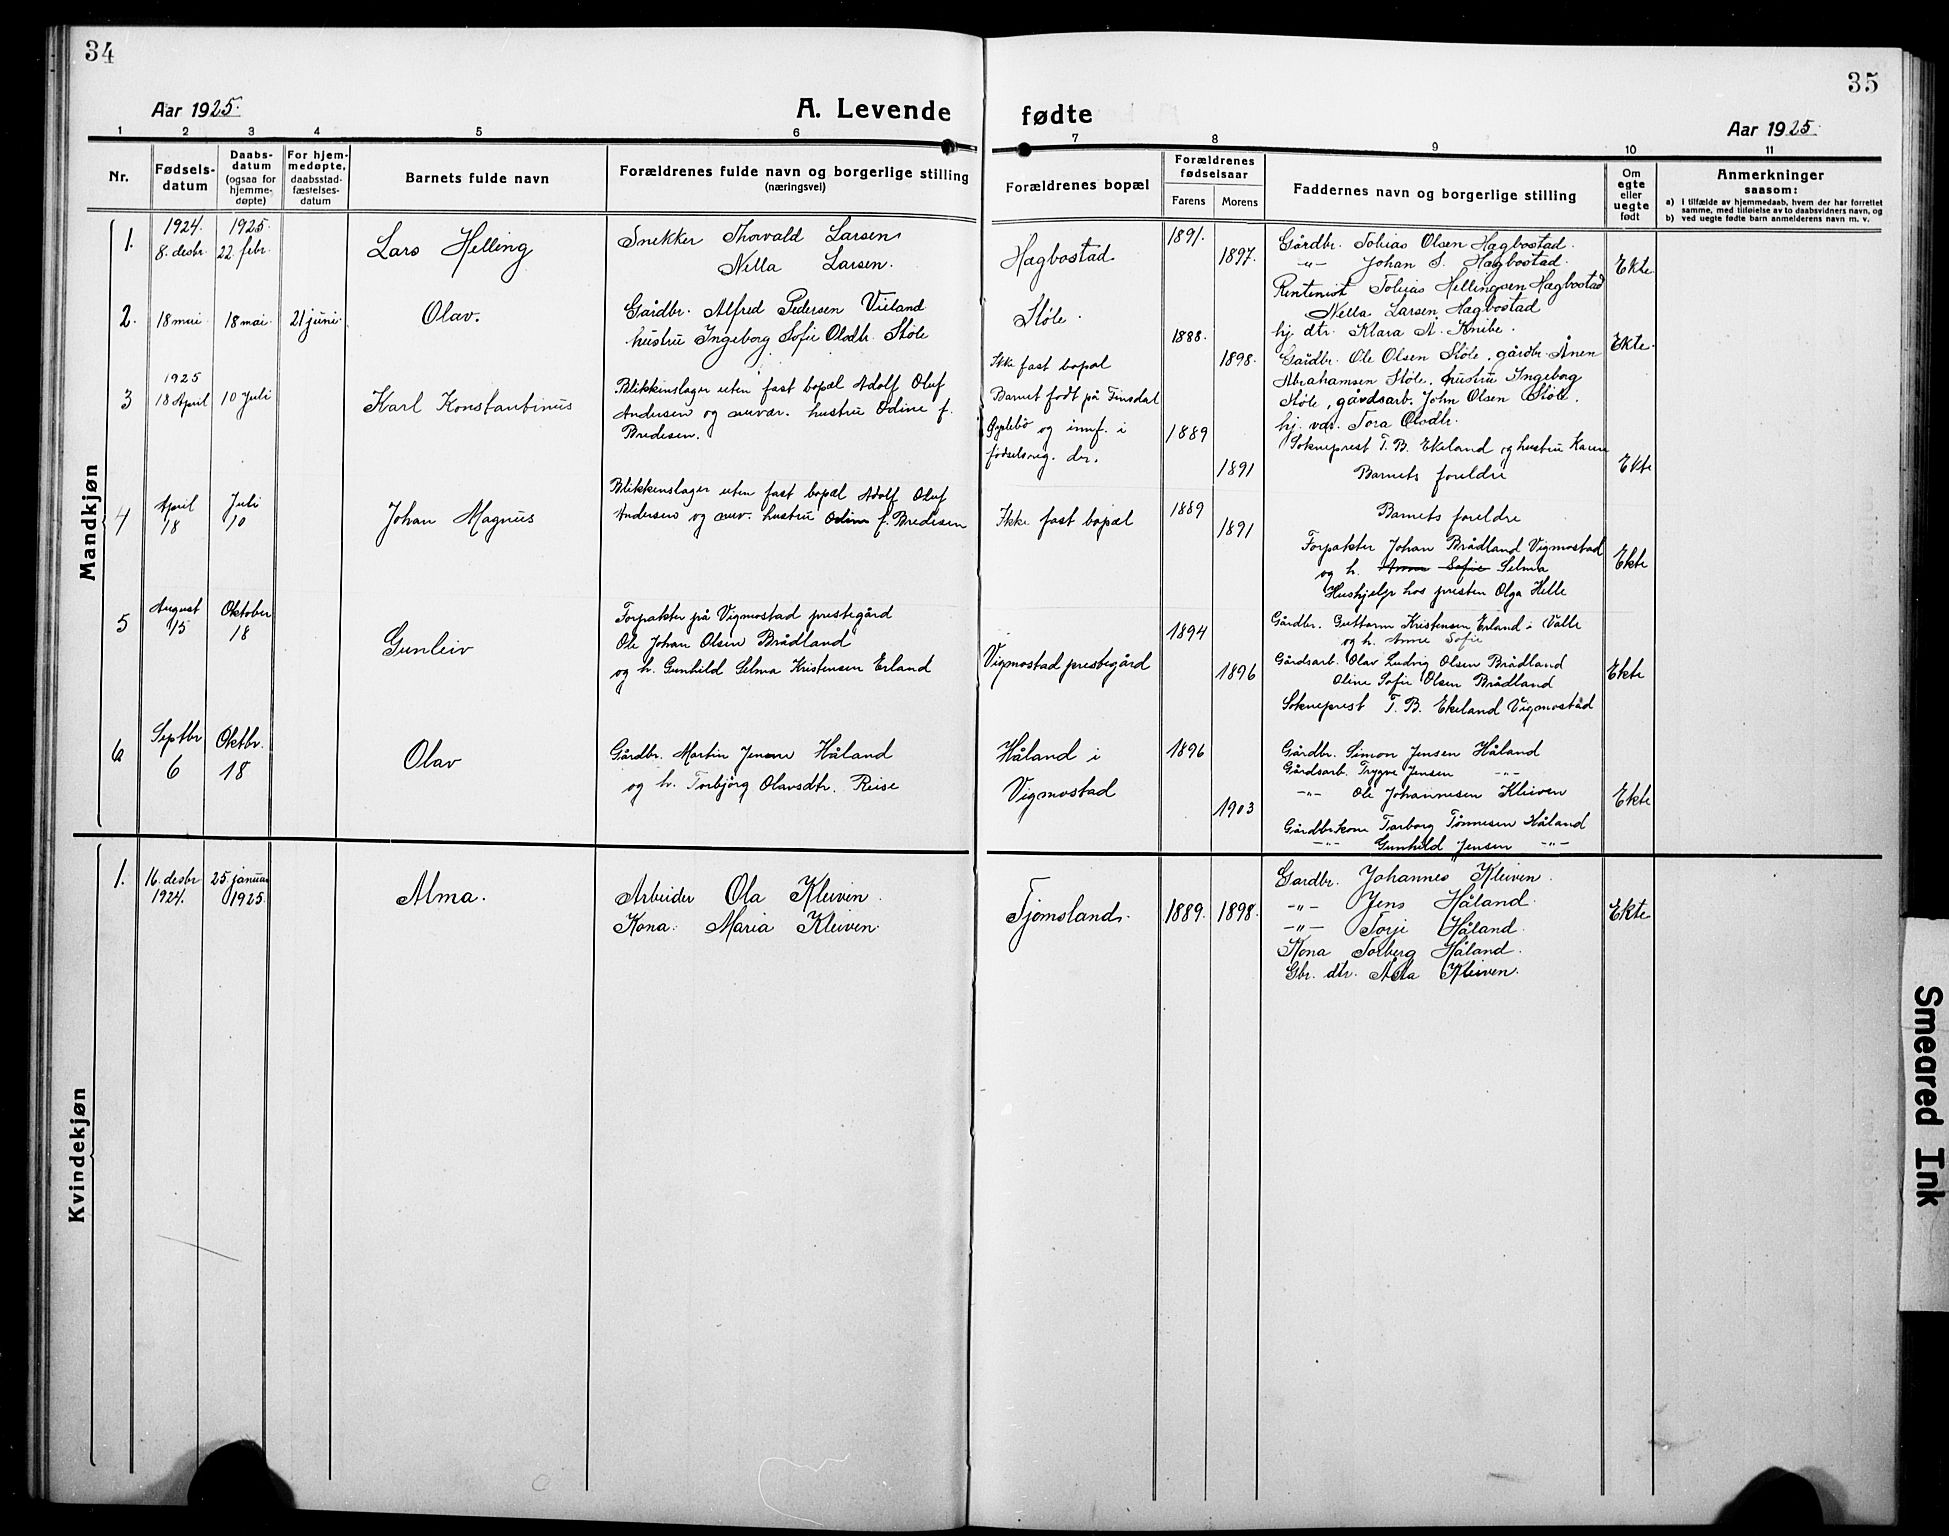 34
Aar 1925.
A. Levende
1 2 3 4 5 6
Nr.
Fødsels-
datum
Daabs-
datum
(ogsaa for
hjemme-
døpte)
For hjem-
medøpte,
daabsstad-
fæstelses-
datum
Barnets fulde navn
Forældrenes fulde navn og borgerlige stilling
(næringsvei)
Mandkjøn
1924. 1925.
1. 8. desbr. 22. febr. Lars Helling Snekker Thorvald Larsen
Nella Larsen.
2. 18 mai 18 mai. 21 juni. Olav. Gårdbr. Alfred Pedersen Vieland
hustru Ingeborg Sofie Olsdtr. Støle
1925
3 18 April 10 Juli Karl Konstantinus Blikkenslager uten fast bopæl Adolf Oluf
Andersen og hustru Odine f.
Bredesen.
4 April Juli Johan Magnus Blikkenslager uten fast bopæl Adolf Oluf
18 10 Andersen og hustru Odine f. Bredesen
5 August Oktober Gunleiv Forpakter på Vigmostad prestegård
15 18 Ole Johan Olsen Brådland
og h. Gunhild Selma Kristensen Erland
6 Septbr Oktbr. Olav Gårdbr. Martin Jensen Håland
6 18 og h. Torbjørg Olavsdtr. Reise
Kvindekjøn
1. 16. desbr 25 januar Alma. Arbeider Ola Kleiven.
1924. 1925. Kona: Maria Kleiven.
35
fødte
Aar 1925.
7 8 9 10 11
Forældrenes bopæl
Forældrenes
fødselsaar
Farens Morens
Faddernes navn og borgerlige stilling
Om
egte
eller
uegte
født
Anmerkninger
saasom:
a) I tilfælde av hjemmedaab, hvem der har forrettet
samme, med tilføielse av to daabsvidners navn, og
b) ved uegte fødte barn anmelderens navn m. v.
Hægbostad. 1891. 1897. Gårdbr. Tobias Olsen Hægbostad. Ekte
-"- Johan S. Hægbostad.
Rentenist Tobias Hellingsen Hægbostad
Nella Larsen Hægbostad
hj. dtr. Klara A. Knibe.
Støle. 1888. 1898. Gårdbr. Ole Olsen Støle, gårdbr. Ånen Ekte.
Abrahamsen Støle, hustru Ingeborg
Støle, gårdsarb. John Olsen Støle.
hj. vær. Tora Olsdtr.
Ikke fast bopæl
Barnet født på Finsdal
og innf. i
fødselsreg. der.
1889 1891 Sokneprest T. B. Ekeland og hustru Karen Ekte
Barnets foreldre
Ikke fast bopæl 1889 1891 Barnets foreldre
Forpakter Johan Brådland Vigmostad Ekte
og h. Anne Sofie Selma
Hushjelp hos presten Olga Helle
Vigmostad prestegård 1894 1896 Gårdbr. Guttorm Kristensen Erland i Valle
og h. Anne Sofie
Gårdsarb. Olav Ludvig Olsen Brådland Ekte
Oline Sofie Olsen Brådland
Sokneprest T. B. Ekeland Vigmostad
Håland i 1896 Gårdbr. Simon Jensen Håland
Gårdsarb. Trygve Jensen -"-
Vigmostad 1903 -"- Ole Johannesen Kleiven Ekte
Gårdbrkone Torborg Tønnesen Håland
-"- Gunhild Jensen -"-
Tjomsland. 1889. 1898. Gardbr. Johannes Kleiven. Ekte
-"- Jens Håland.
-"- Torje Håland.
Kona Tolberg Håland.
Gbr. dtr. Kleiven.
Smeared Ink